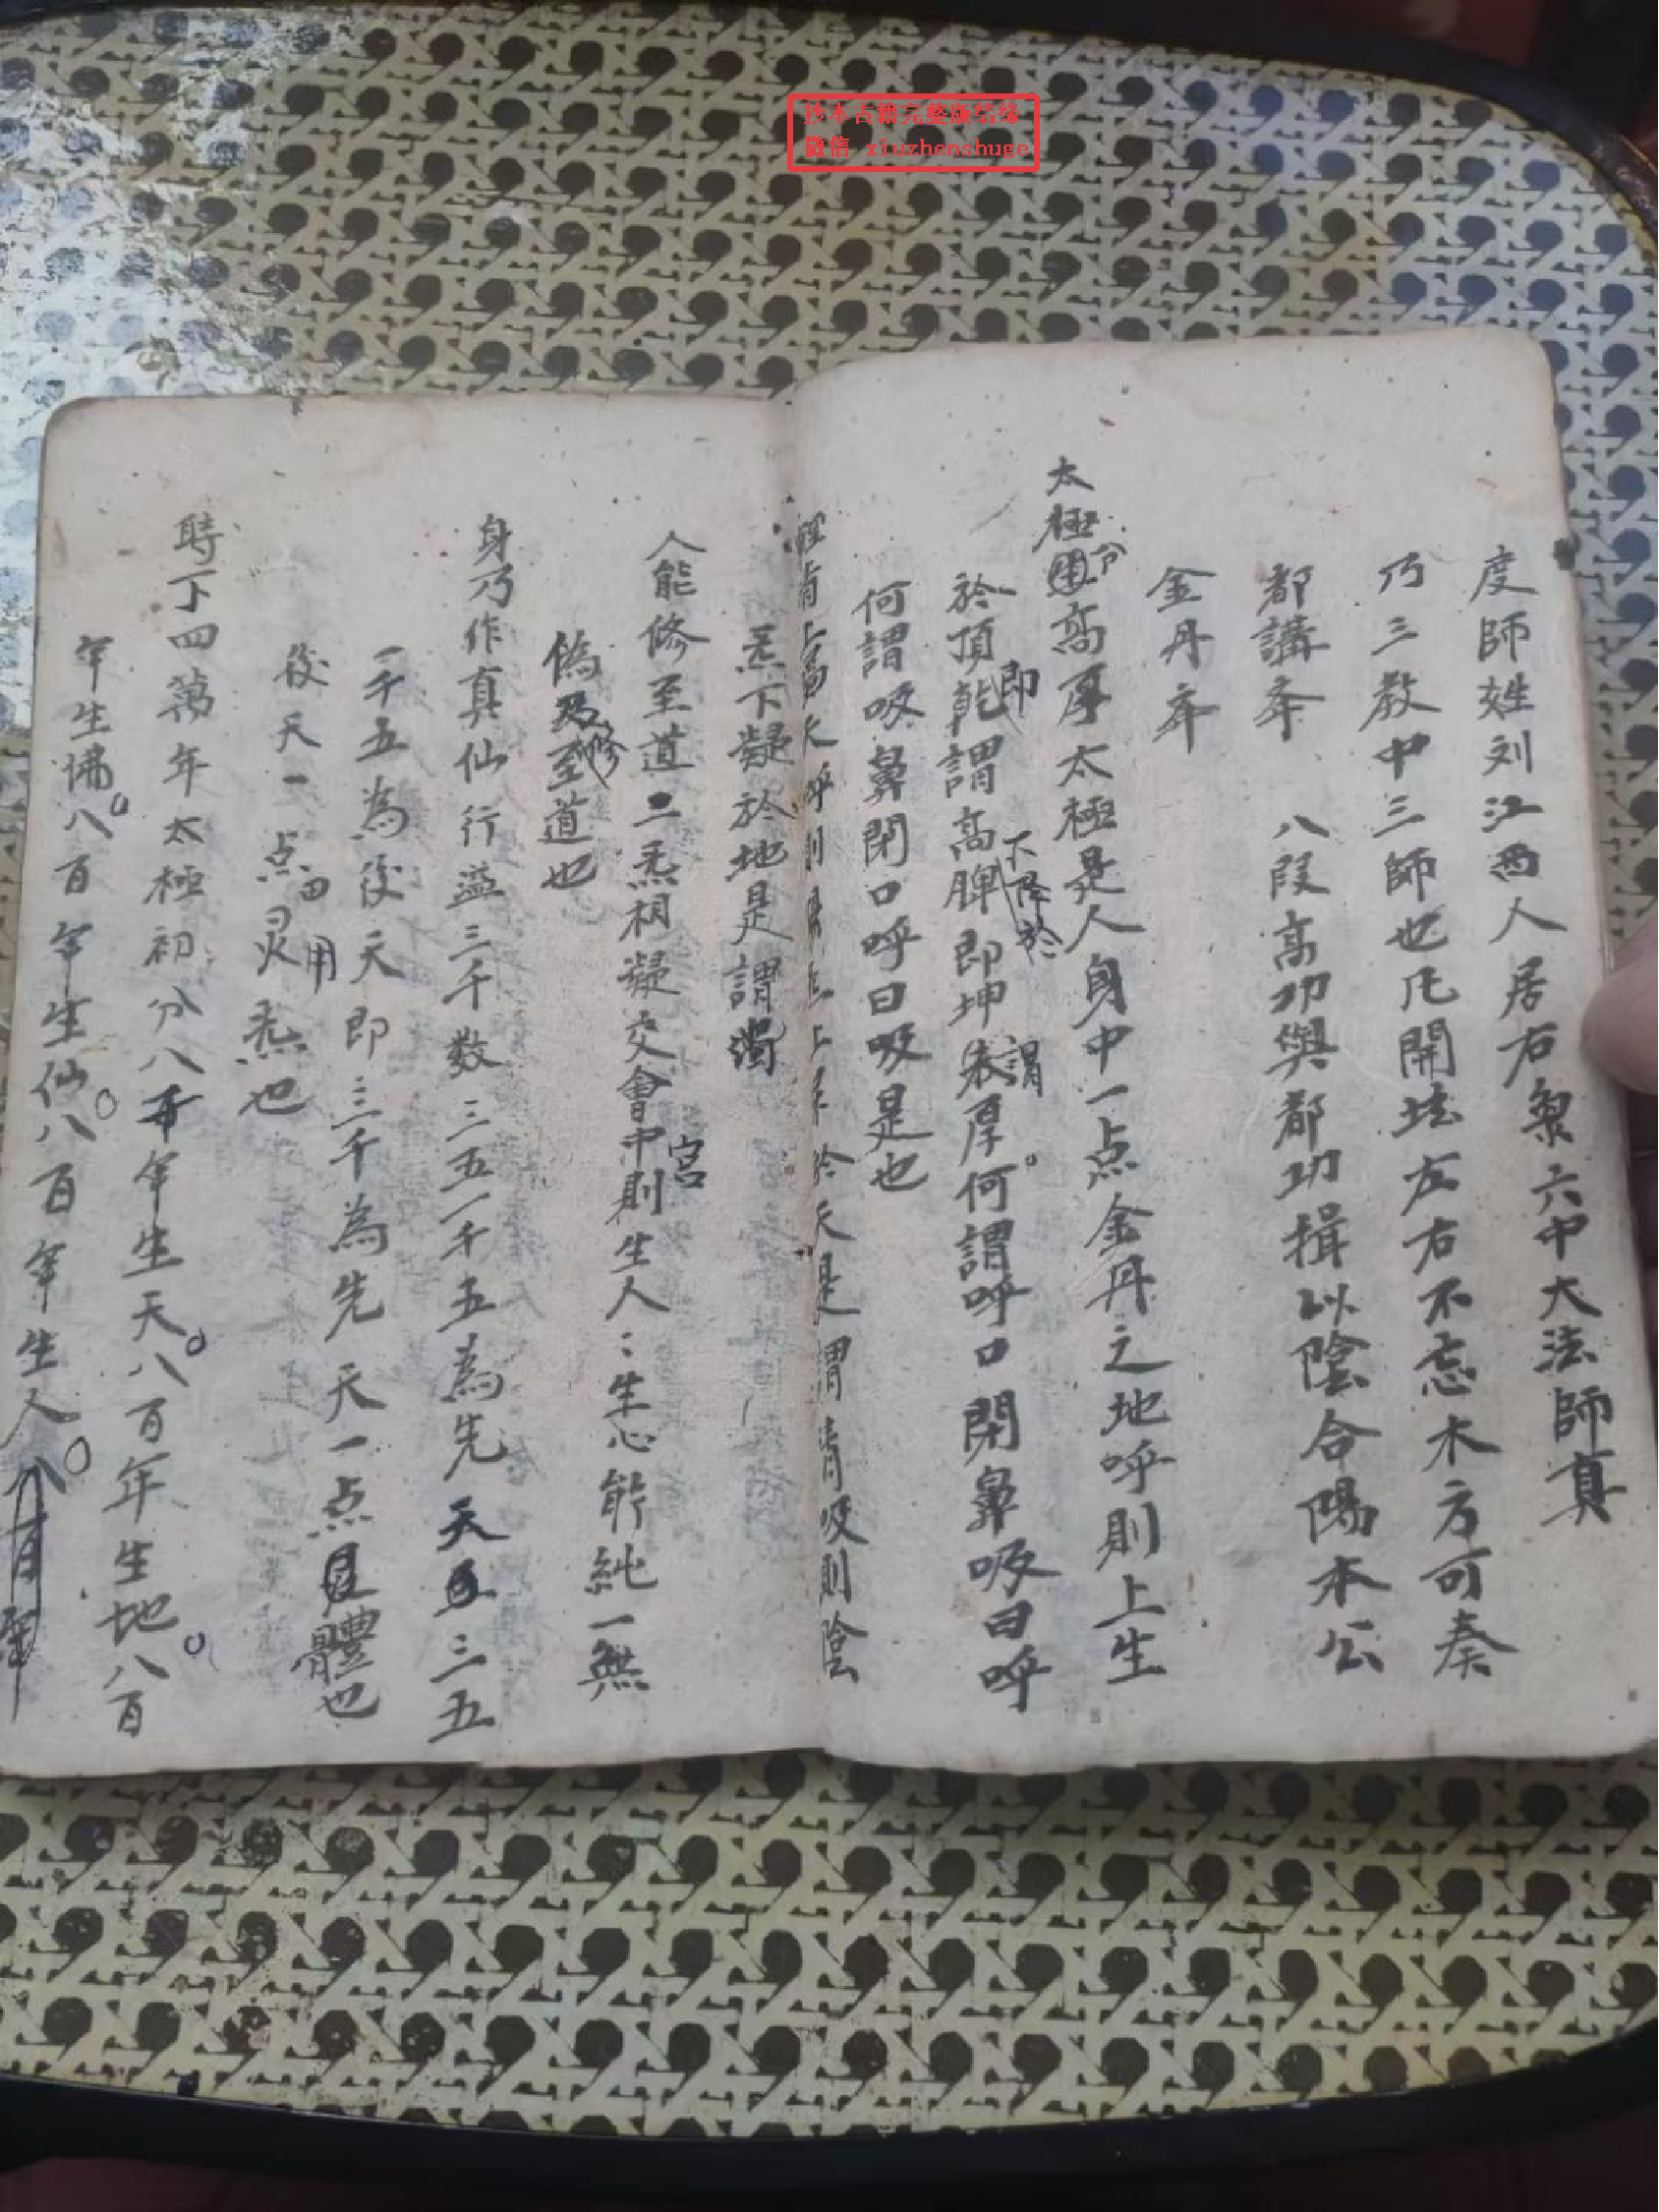 抄本古籍完整版结缘
微信 xiuzhenshuge
度師姓刘江西人居右魚六中大法師真
乃三教中三師也凡開坛左右不忘木方可奏
都講夲 八段高功與都功揖以陰合陽木公
金丹夲
太極分高厚太極是人身中一点金丹之地呼則上生
於頂即乾謂高脾下降於即坤謂厚何謂呼口開鼻吸曰呼
何謂吸鼻閉口呼曰吸是也
輕清上為天呼則陽炁上昇於天是謂清吸則陰
炁下凝於地是謂濁
人能修至道二炁相凝交會中宮則生人：生心能純一無
偽乃修至道也
身乃作真仙行滿三千数三五一千五為先天三五
一千五為後天即三千為先天一点体體也
後天一点灵用炁也
時下四萬年太極初分八百年生天八百年生地八百
年生佛八百年生仙八百年生人